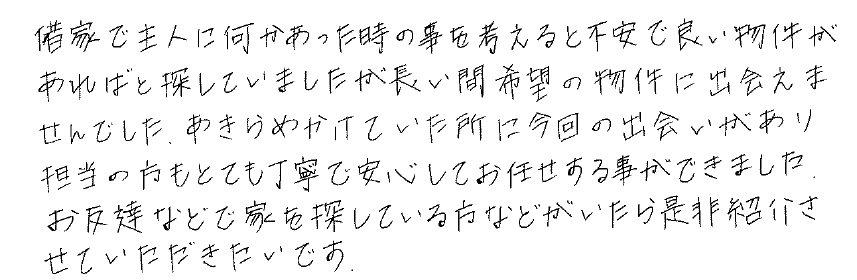 借家で主人に何かあった時の事を考えると不安で良い物件が
あればと探していましたが長い間希望の物件に出会えま
せんでした.あきらめかけていた所に今回の出会いがあり
担当の方もとても丁寧で安心してお任せする事ができました.
お友達などで家を探している方などがいたら是非紹介さ
せていただきたいです.